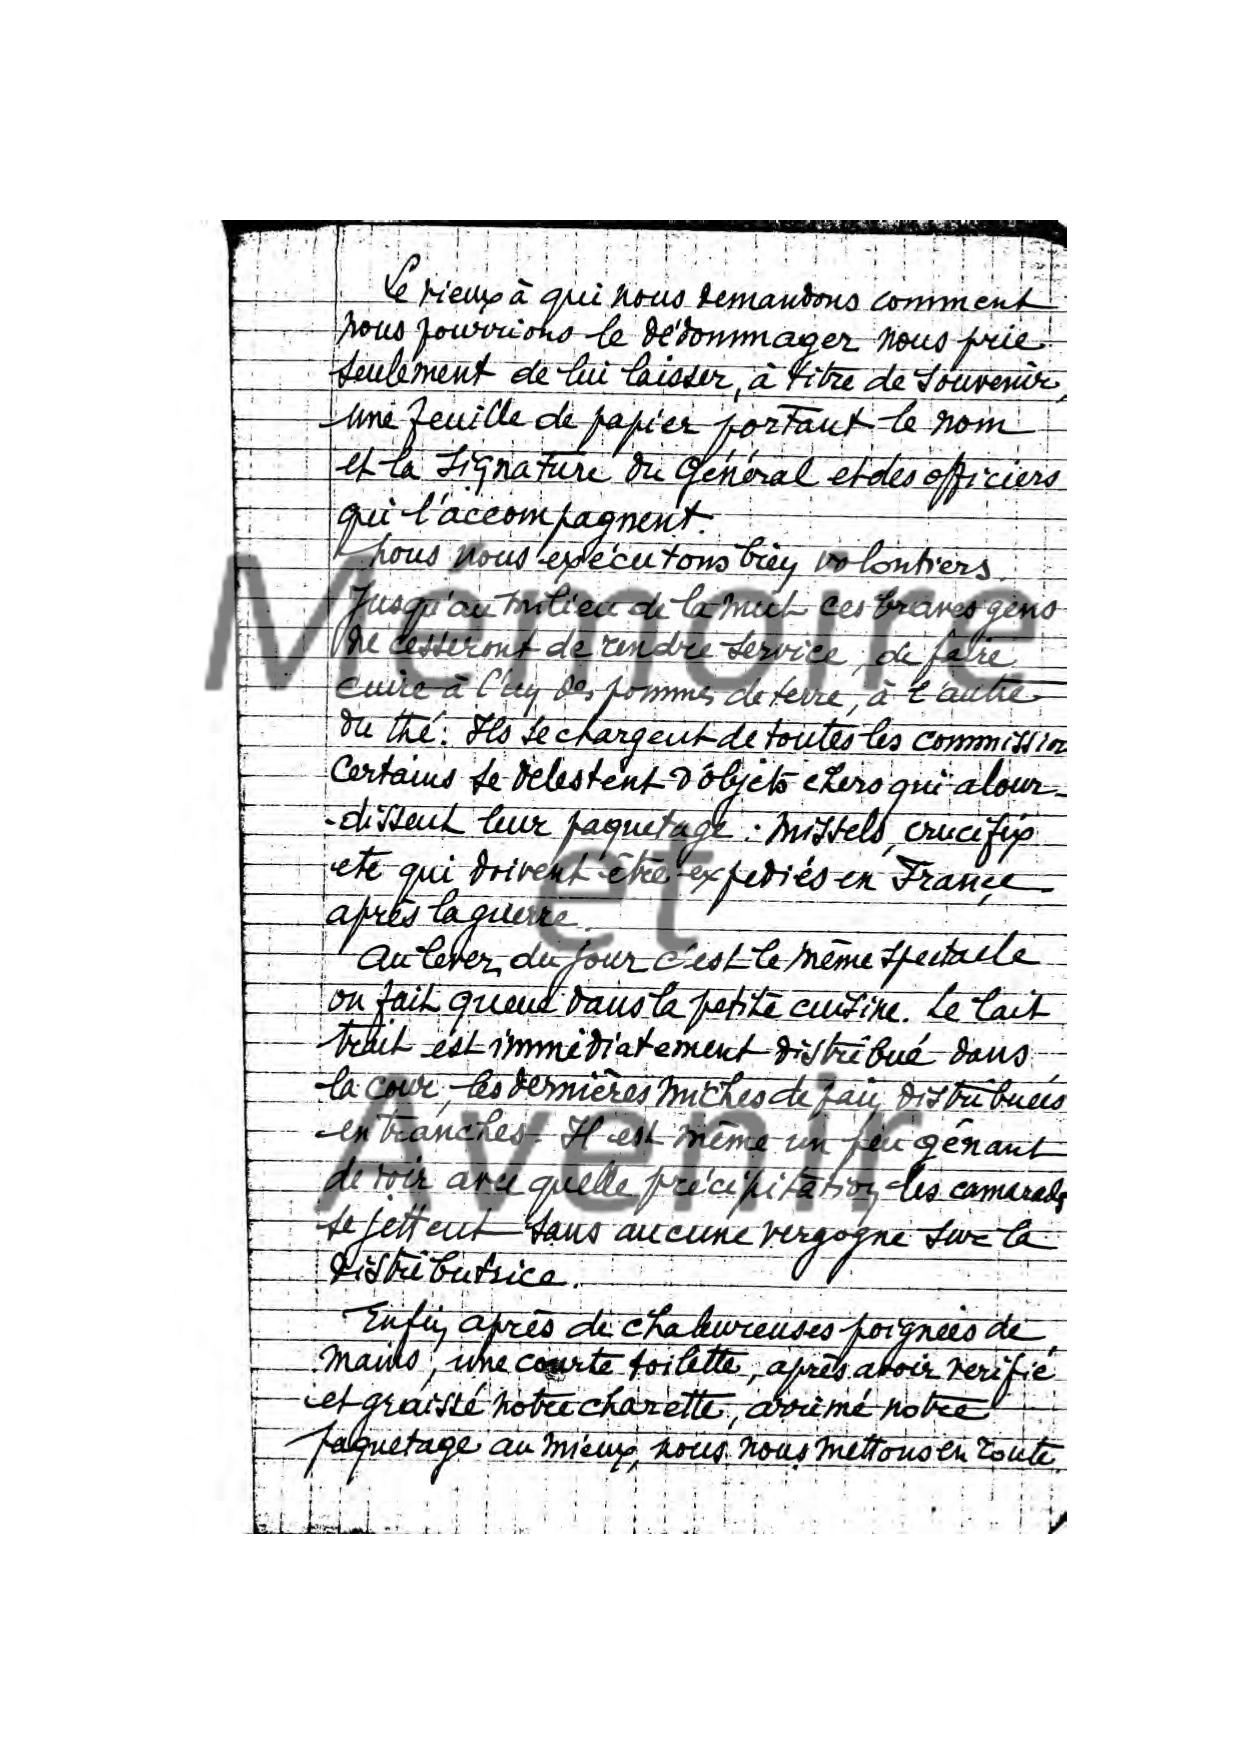 Le vieux à qui nous demandons comment
nous pourrions le dédommager nous prie
seulement de lui laisser, à titre de souvenir,
une feuille de papier portant le nom
et la signature du Général et des officiers
qui l'accompagnent.
Nous nous exécutons bien volontiers.
Jusqu'au milieu de la nuit ces braves gens
ne cesseront de rendre service, de faire
cuire à l'un des pommes de terre, à l'autre
du thé. Ils se chargent de toutes les commission
Certains se délestent d'objets chers qui alour-
-dissent leur paquetage : missels, crucifix
etc qui doivent être expédiés en France
après la guerre.
Au lever du jour c'est le même spectacle
on fait queue dans la petite cuisine. Le lait
trait est immédiatement distribué dans
la cour, les dernières miches de pain distribuées
en tranches. Il est même un peu gênant
de voir avec quelle précipitation les camarades
se jettent sans aucune vergogne sur la
distributrice.
Enfin, après de chaleureuses poignées de
mains, une courte toilette, après avoir vérifié
et graissé notre charette, arrimé notre
paquetage au mieux, nous nous mettons en route
Mémoire
et
Avenir